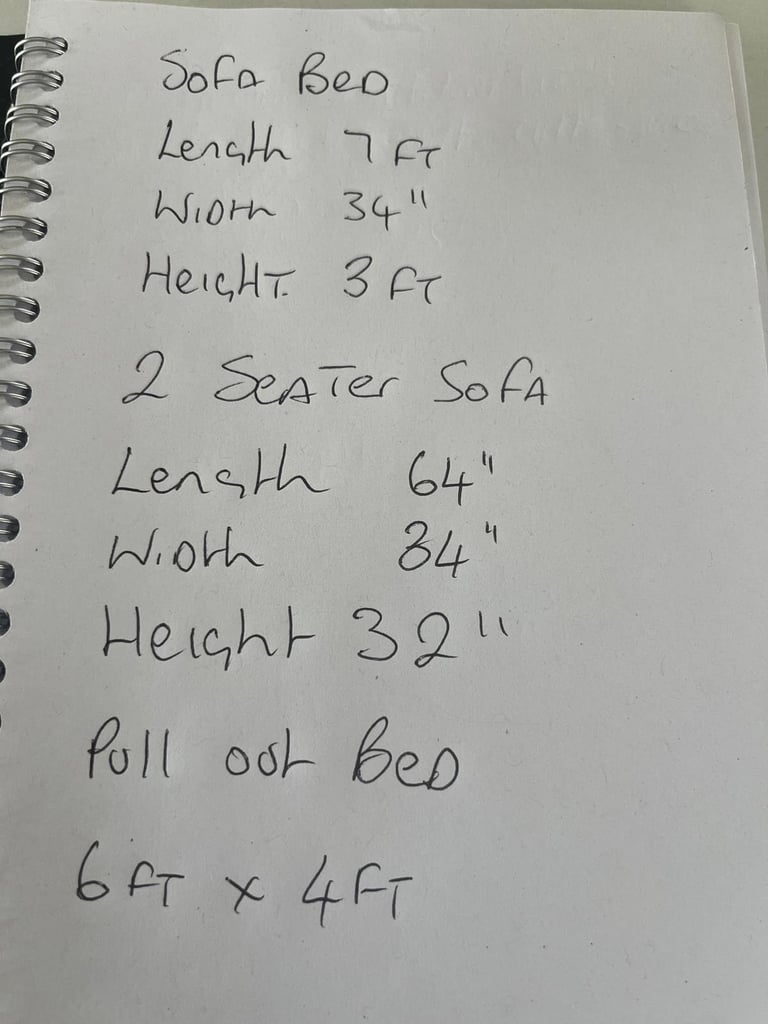 Sofa Bed
Length 7 FT
Width 34"
Height 3 FT
2 Seater Sofa
Length 64"
Width 34"
Height 32"
Pull out Bed
6 FT x 4 FT